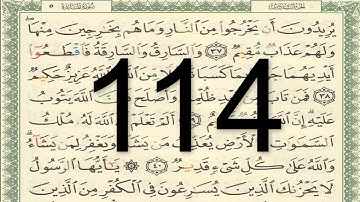 سُورَةُ المَائِدَة
يُرِيدُونَ أَن يَخْرُجُوا۟ مِنَ ٱلنَّارِ وَمَا هُم بِخَٰرِجِينَ مِنْهَا
وَلَهُمْ عَذَابٌ مُّقِيمٌ ٣٧ وَٱلسَّارِقُ وَٱلسَّارِقَةُ فَٱقْطَعُوٓا۟
أَيْدِيَهُمَا بِمَا كَسَبَا مِّنَ ٱللَّهِ وَٱللَّهُ عَزِيزٌ حَكِيمٌ
٣٨ فَمَن تَابَ ظُلْمِهِۦ وَأَصْلَحَ ٱللَّهَ يَتُوبُ
عَلَيْهِ إِنَّ ٱللَّهَ ٣٩ أَلَمْ تَعْلَمْ أَنَّ ٱللَّهَ مُلْكُ
ٱلسَّمَٰوَٰتِ وَٱلْأَرْضِ يُعَذِّبُ مَن يَشَآءُ وَيَغْفِرُ لِمَن يَشَآءُ
وَٱللَّهُ عَلَىٰ كُلِّ شَىْءٍ قَدِيرٌ ٤٠ يَٰٓأَيُّهَا ٱلرَّسُولُ
لَا يَحْزُنكَ ٱلَّذِينَ يُسَٰرِعُونَ فِى ٱلْكُفْرِ مِنَ ٱلَّذِينَ
114